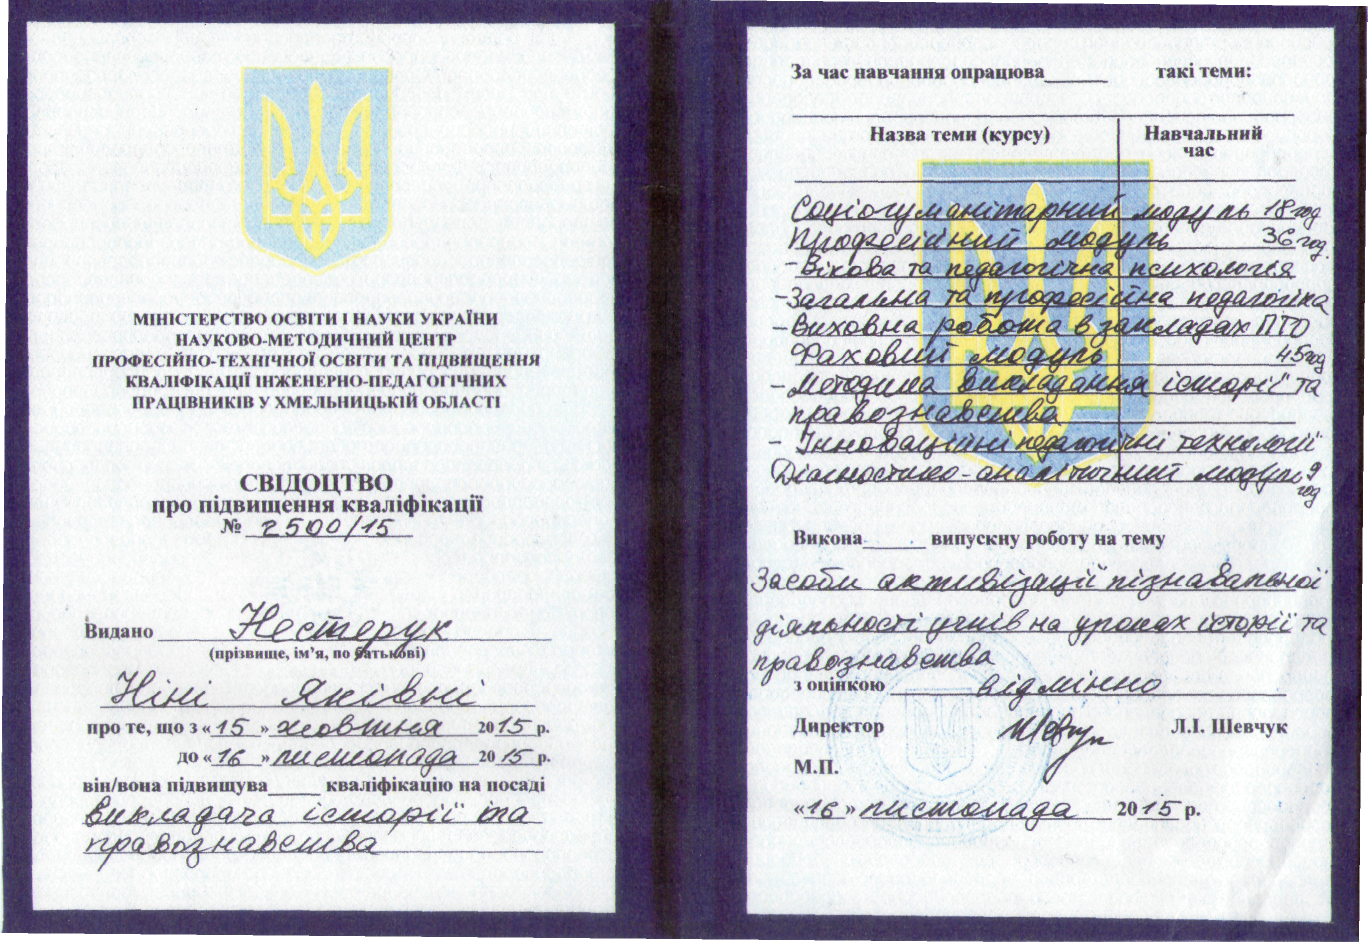 МІНІСТЕРСТВО ОСВІТИ І НАУКИ УКРАЇНИ
НАУКОВО-МЕТОДИЧНИЙ ЦЕНТР
ПРОФЕСІЙНО-ТЕХНІЧНОЇ ОСВІТИ ТА ПІДВИЩЕННЯ
КВАЛІФІКАЦІЇ ІНЖЕНЕРНО-ПЕДАГОГІЧНИХ
ПРАЦІВНИКІВ У ХМЕЛЬНИЦЬКІЙ ОБЛАСТІ
СВІДОЦТВО
про підвищення кваліфікації
№ 2500/15
Видано Нестерук
(прізвище, ім’я, по батькові)
Ніні Яківні
про те, що з «15» жовтня 2015 р.
до «16» листопада 2015 р.
він/вона підвищува______ кваліфікацію на посаді
викладача історії та
правознавства
За час навчання опрацюва______ такі теми:
Назва теми (курсу) Навчальний
час
Соціогуманітарний модуль 18 год
Професійний модуль 36 год.
- Вікова та педагогічна психологія
- Загальна та професійна педагогіка
- Виховна робота в закладах ПТО
Фаховий модуль 45 год
- Методика викладання історії та
правознавства
- Інноваційні педагогічні технології
Діагностико-аналітичний модуль 9
год
Викона______ випускну роботу на тему
Засоби активізації пізнавальної
діяльності учнів на уроках історії та
правознавства
з оцінкою відмінно
Директор Л.І. Шевчук
М.П.
«16» листопада 2015 р.